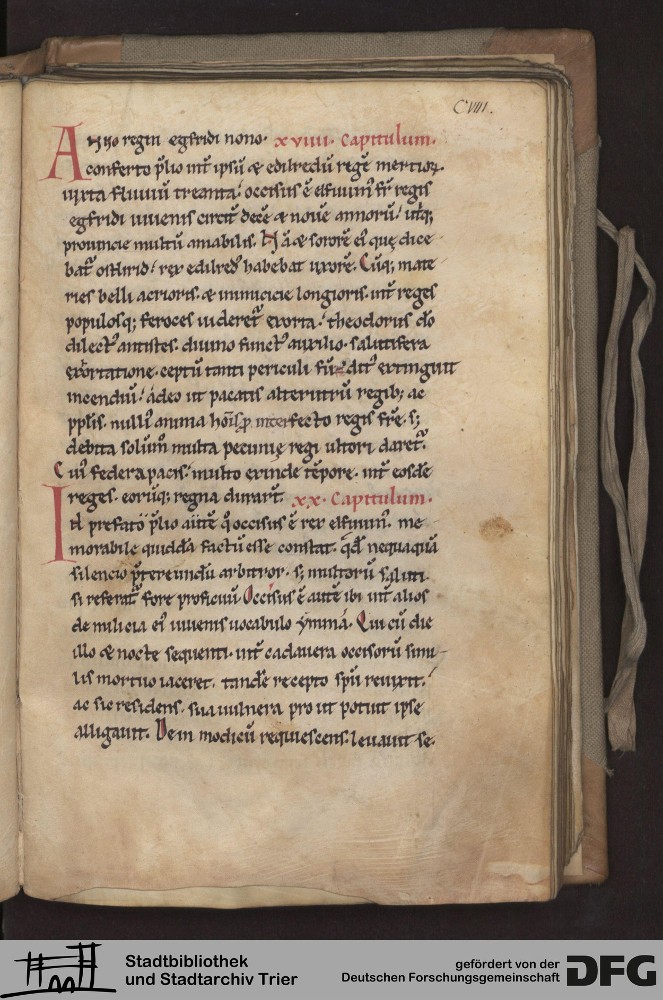 CVIII.
Anno regni egfridi nono. xviiii. Capitulum.
conserto p̄lio int̄ ipsū & edilredū regē mertioꝝ.
iuxta fluuiū treanta. occisus ē elfuuinꝰ fr̄ regis
egfridi iuuenis circit̄ decē & nouē annorū. utiq;
prouincie multū amabilis. Nā & sororē eiꝰ quę dice
batꝰ osthrid. rex edilredꝰ habebat uxorē. Cūq; mate
ries belli acrioris. & inimicicie longioris. int̄ reges
populosq; feroces uideretꝰ exorta. theodorus dō
dilectꝰ antistes. diuino functꝰ auxilio. salutifera
exortatione. ceptū tanti periculi fūditꝰ extinguit
incendiū. adeo ut pacatis alterutrū regib; ac
pplis. nulliꝰ anima hōis p interfecto regis fr̄e. s;
debita solūm̄ multa pecunię regi ultori daretꝰ.
Cuiꝰ federa pacis. multo exinde tēpore. int̄ eosdē
reges. eorūq; regna durart̄. xx. Capitulum.
In prefato p̄lio autē q̊ occisus ē rex elfuuinꝰ. me
morabile quiddā factū esse constat. qđ nequaquā
silencio p̄tereundū arbitror. s; multorū saluti
si referatꝰ fore proficuū. Occisus ē autē ibi int̄ alios
de milicia eiꝰ iuuenis uocabulo ymma. Qui cū die
illo & nocte sequenti. int̄ cadauera occisorū simi
lis mortuo iaceret. tandē recepto spū reuixit.
ac sic residens. sua uulnera pro ut potuit ipse
alligauit. Dein modicū requiescens. leuauit se.
Stadtbibliothek
und Stadtarchiv Trier
gefördert von der
Deutschen Forschungsgemeinschaft
DFG